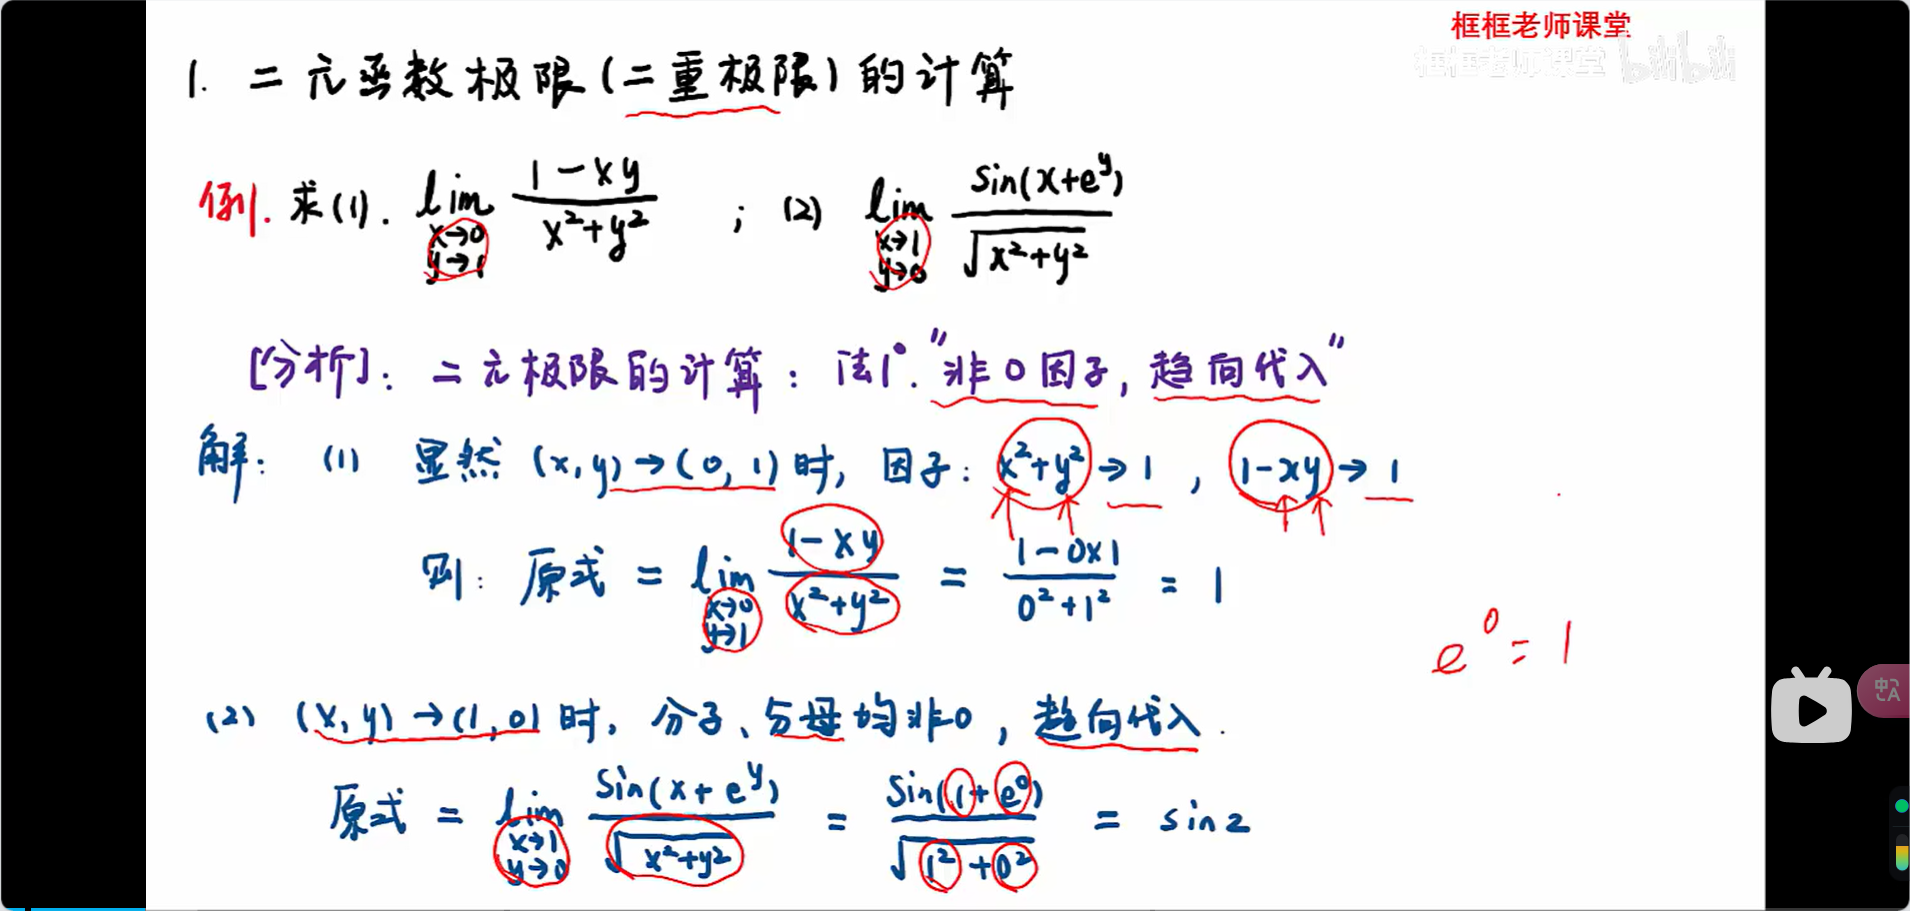 框框老师课堂
框框老师课堂 bilibili
1. 二元函数极限(二重极限)的计算
例. 求(1). lim x→0 y→1 (1-xy)/(x²+y²) ; (2) lim x→1 y→0 sin(x+e^y)/√(x²+y²)
[分析]: 二元极限的计算: 法1°. "非0因子, 趋向代入"
解: (1) 显然 (x,y)→(0,1)时, 因子: x²+y²→1, 1-xy→1
则: 原式 = lim x→0 y→1 (1-xy)/(x²+y²) = (1-0×1)/(0²+1²) = 1
e⁰=1
(2) (x,y)→(1,0)时, 分子、分母均非0, 趋向代入.
原式 = lim x→1 y→0 sin(x+e^y)/√(x²+y²) = sin(1+e⁰)/√(1²+0²) = sin2
中A